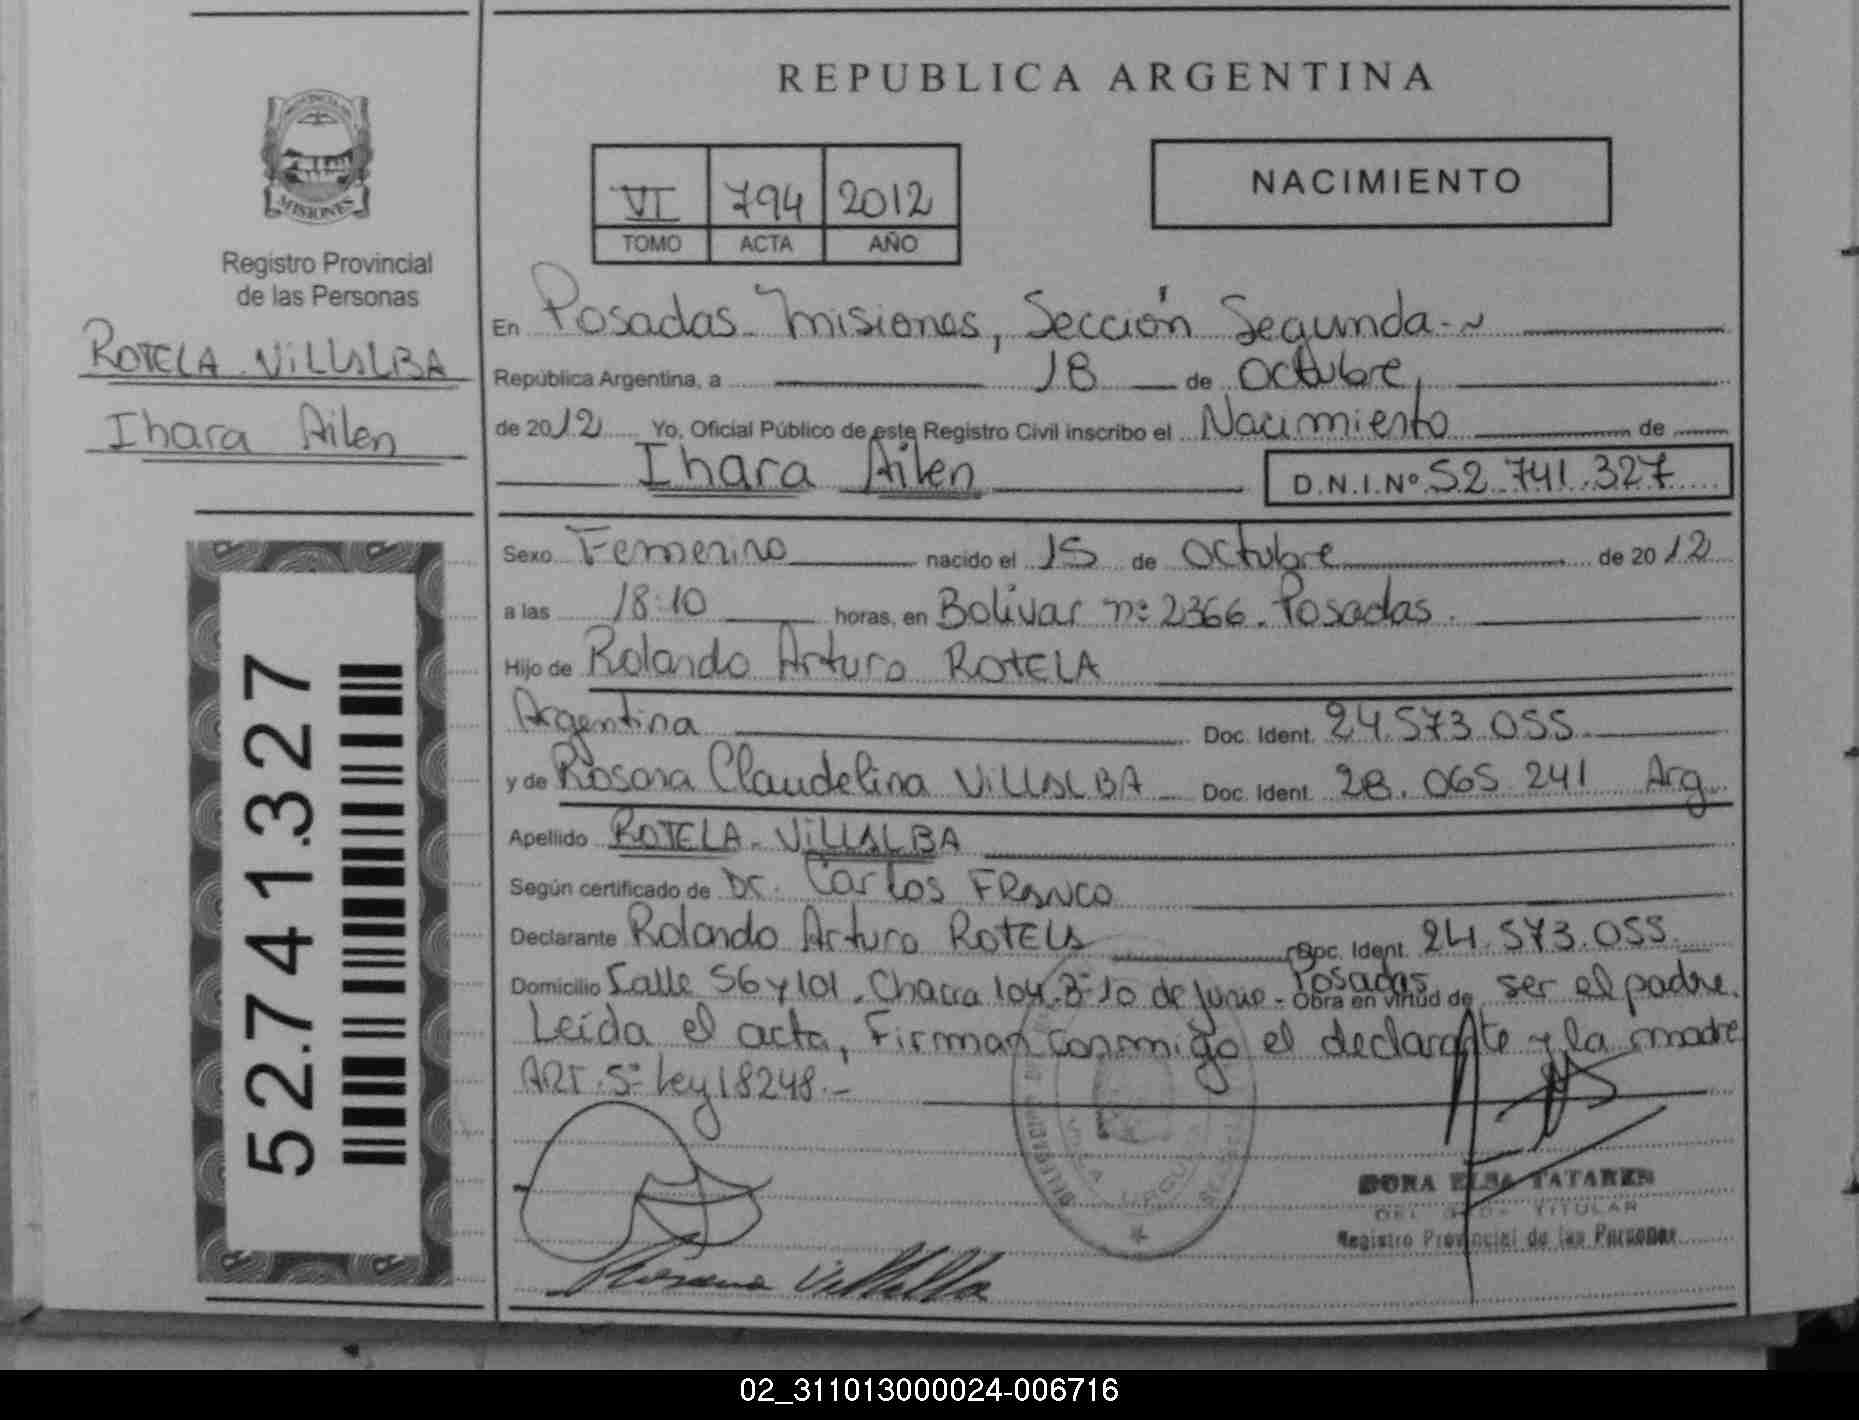 REPUBLICA ARGENTINA
PROVINCIA DE
MISIONES
Registro Provincial
de las Personas
ROTELA VILLALBA
Ihara Ailen
52.741.327
VI 794 2012
TOMO ACTA AÑO
NACIMIENTO
En Posadas Misiones, Sección Segunda-~
República Argentina, a 18 de Octubre,
de 2012 Yo, Oficial Público de este Registro Civil inscribo el Nacimiento de
Ihara Ailen D.N.I.Nº 52.741.327
Sexo Femenino nacido el 15 de Octubre de 2012
a las 18:10 horas, en Bolivar nº 2366. Posadas.
Hijo de Rolando Arturo ROTELA
Argentina Doc. Ident. 24.573.055
y de Rosana Claudelina VILLALBA Doc. Ident. 28.065.241 Arg.
Apellido ROTELA-VILLALBA
Según certificado de Dr. Carlos FRANCO
Declarante Rolando Arturo ROTELA Doc. Ident. 24.573.055
Domicilio Calle 56 y 101. Chacra 104. Bº 10 de Junio - Posadas Obra en virtud de ser el padre.
Leída el acta, Firman conmigo el declarante y la madre
ART. 5º Ley 18248.-
VILLA URQUIZA
Rosana Villalba
DORA ELSA TATAREN
TITULAR
Registro Provincial de las Personas
02_311013000024-006716